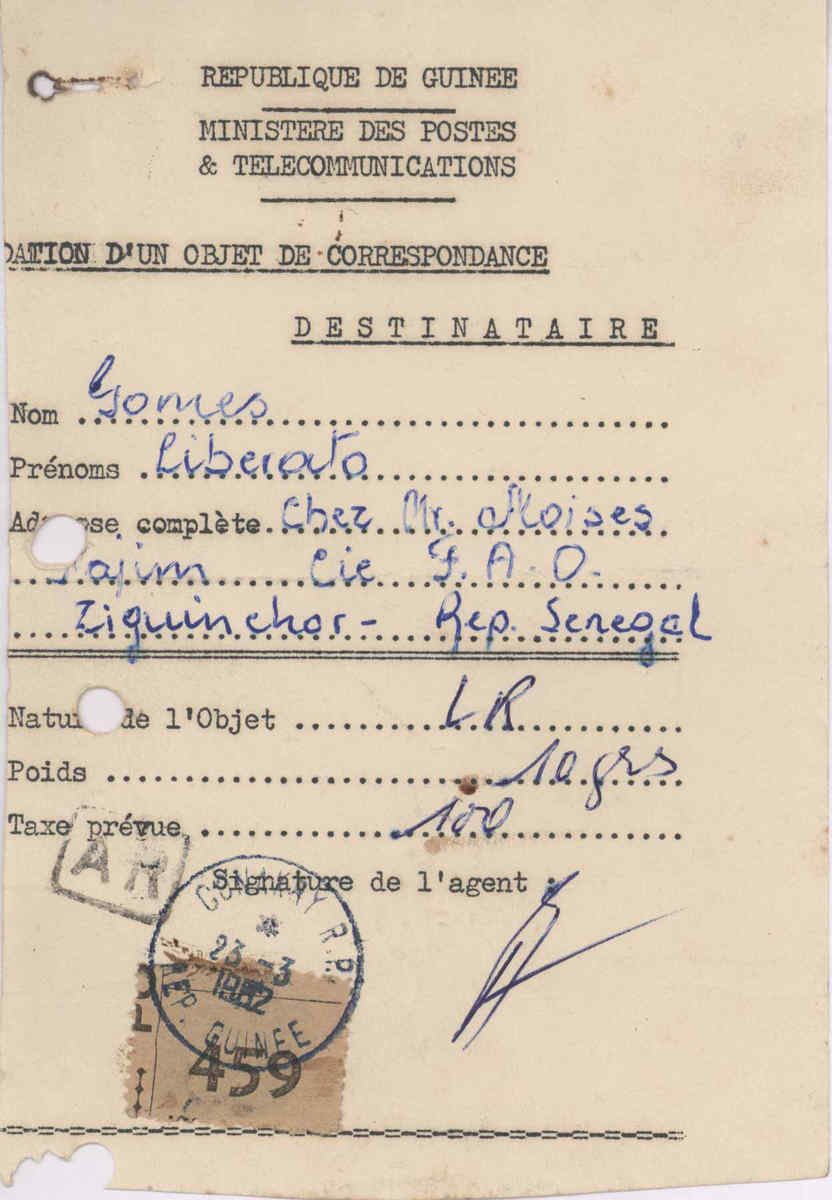 REPUBLIQUE DE GUINEE
MINISTERE DES POSTES
& TELECOMMUNICATIONS
DATION D'UN OBJET DE CORRESPONDANCE
DESTINATAIRE
Nom Gomes
Prénoms Liberato
complète Chez Mr. Moises
Cie F.A.O.
Ziguinchor - Rep. Senegal
de l'Objet LR
Poids 10 grs
Taxe prévue 100
AR
Signature de l'agent :
CONAKRY R.P.
23 -3
1962
REP. GUINEE
459